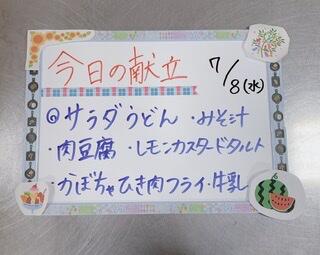 今日の献立
7/8(水)
◎サラダうどん ・みそ汁
・肉豆腐 ・レモンカスタードタルト
・かぼちゃひき肉フライ・牛乳